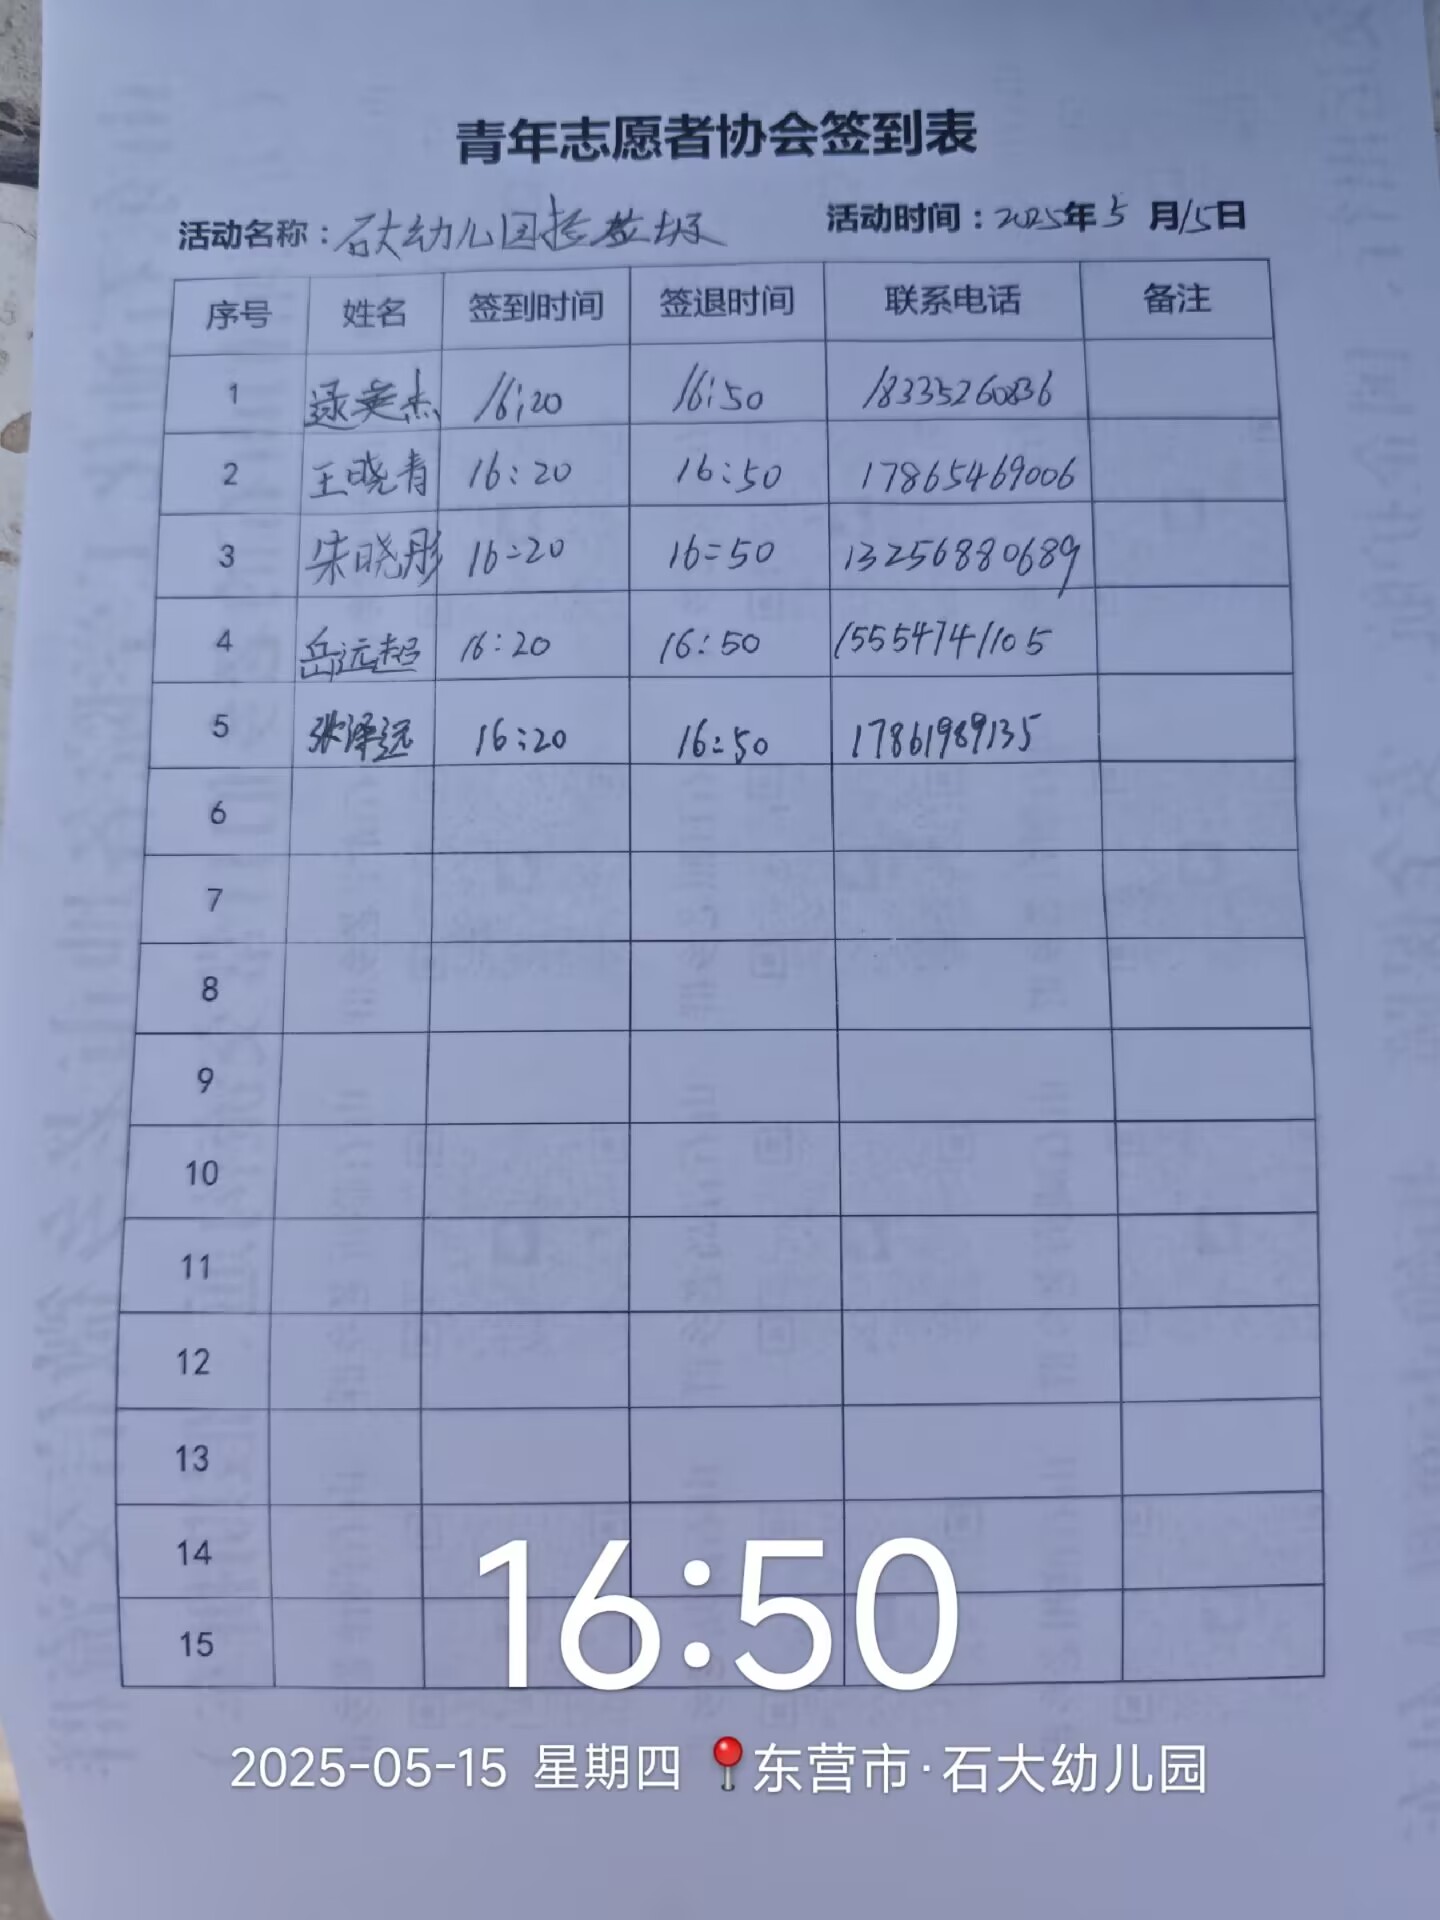 青年志愿者协会签到表
活动名称：石大幼儿园 活动时间：2025年5月15日
序号 姓名 签到时间 签退时间 联系电话 备注
1 逯英杰 16:20 16:50 18335260836
2 王晓青 16:20 16:50 17865469006
3 朱晓彤 16:20 16:50 13256880689
4 岳远超 16:20 16:50 15554741105
5 张泽远 16:20 16:50 17861989135
6
7
8
9
10
11
12
13
14
15
16:50
2025-05-15 星期四 东营市·石大幼儿园